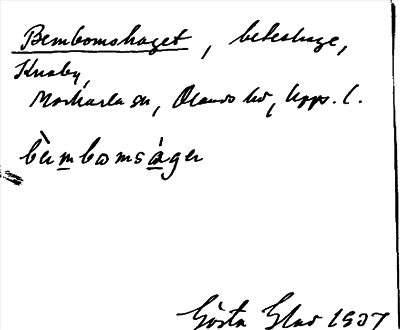 Bembomshaget, beteshage,
Knaby,
Morkarla sn, Olands hd, Upps. l.
bèmbomsàger
Gösta Glas 1937